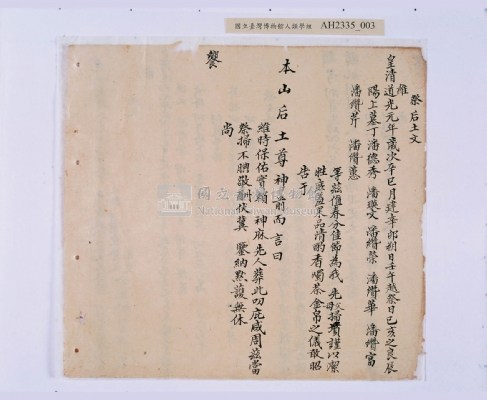 國立臺灣博物館人類學組 AH2335_003
祭后土文
維
皇清道光元年歲次辛巳月建辛卯朔日壬午越祭日己亥之良辰
陽上墓丁潘德秀 潘興文 潘纘榮 潘纘華 潘纘富
潘纘芹 潘纘蕙
等茲值春分佳節為我 先母掃賣謹以潔
牲庶羞果品清酌香燭茶金帛之儀敢昭
告于
本山后土尊神前而言曰
維時保佑實賴 神庥先人葬此叨庇咸周茲當
祭掃不腆敬酬伏冀 鑒納默護無休
尚
饗
國立臺灣博物館
National Taiwan Museum